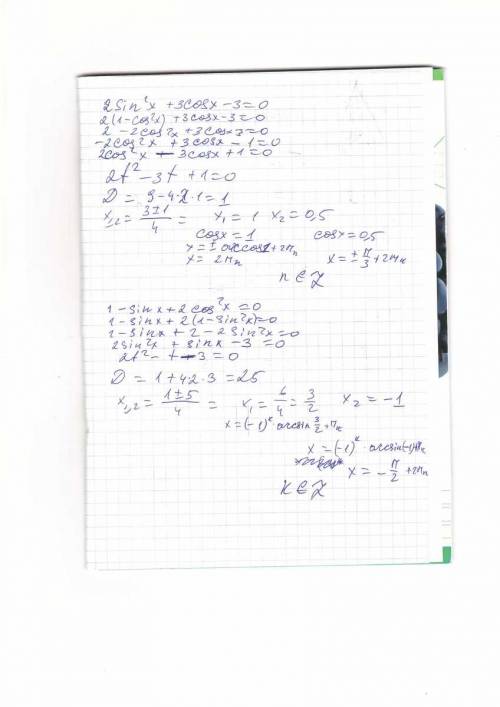 2sin²x + 3cosx - 3 = 0
2(1-cos²x) + 3cosx - 3 = 0
2 - 2cos²x + 3cosx - 3 = 0
-2cos²x + 3cosx - 1 = 0
2cos²x - 3cosx + 1 = 0
2t² - 3t + 1 = 0
D = 9 - 4·2·1 = 1
x₁,₂ = (3±1)/4 = x₁ = 1 x₂ = 0,5
cosx = 1 cosx = 0,5
x = ± arccos1 + 2πn
x = 2πn x = ± π/3 + 2πn
n ∈ Z
1 - sinx + 2cos²x = 0
1 - sinx + 2(1-sin²x) = 0
1 - sinx + 2 - 2sin²x = 0
2sin²x + sinx - 3 = 0
2t² - t - 3 = 0
D = 1 + 4·2·3 = 25
x₁,₂ = (1±5)/4 = x₁ = 6/4 = 3/2 x₂ = -1
x = (-1)ᵏ arcsin 3/2 + πn
x = (-1)ᵏ · arcsin(-1) + πk
x = - π/2 + 2πn
k ∈ Z